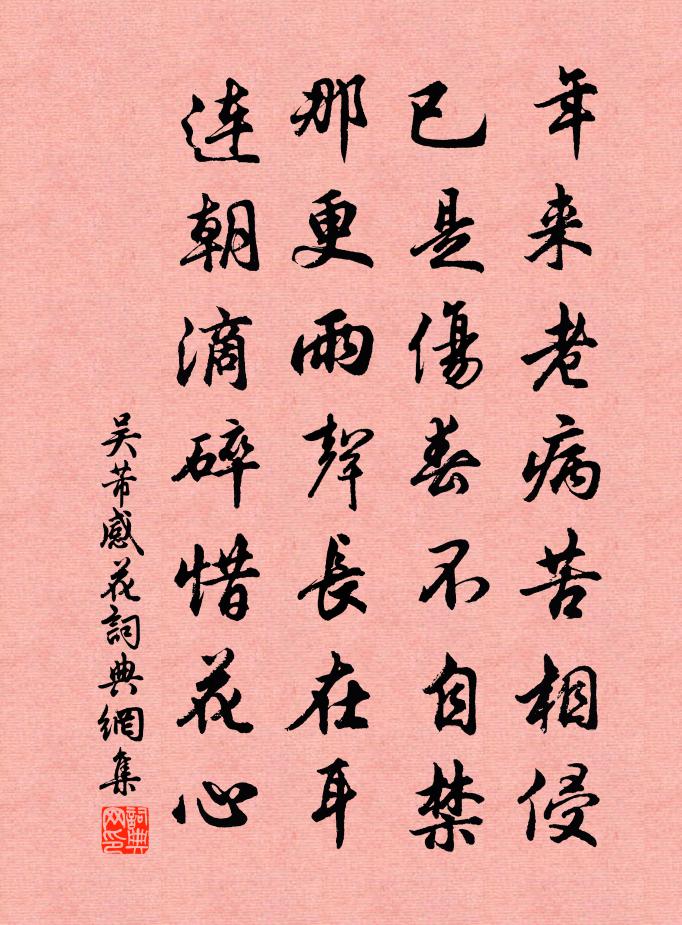 年来老病苦相侵
已是傷春不自禁
那更雨聲長在耳
連朝滴碎惜花心
吴芾感花詞典網集
詞典网印